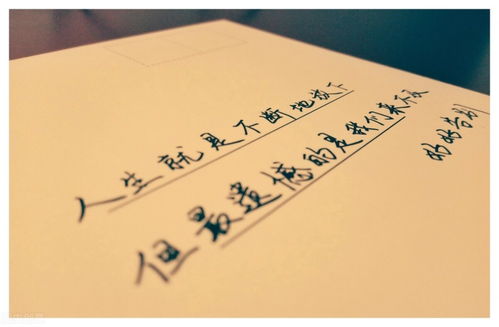 人生就是不断地放下
但最遗憾的是我们来不及
好好告别